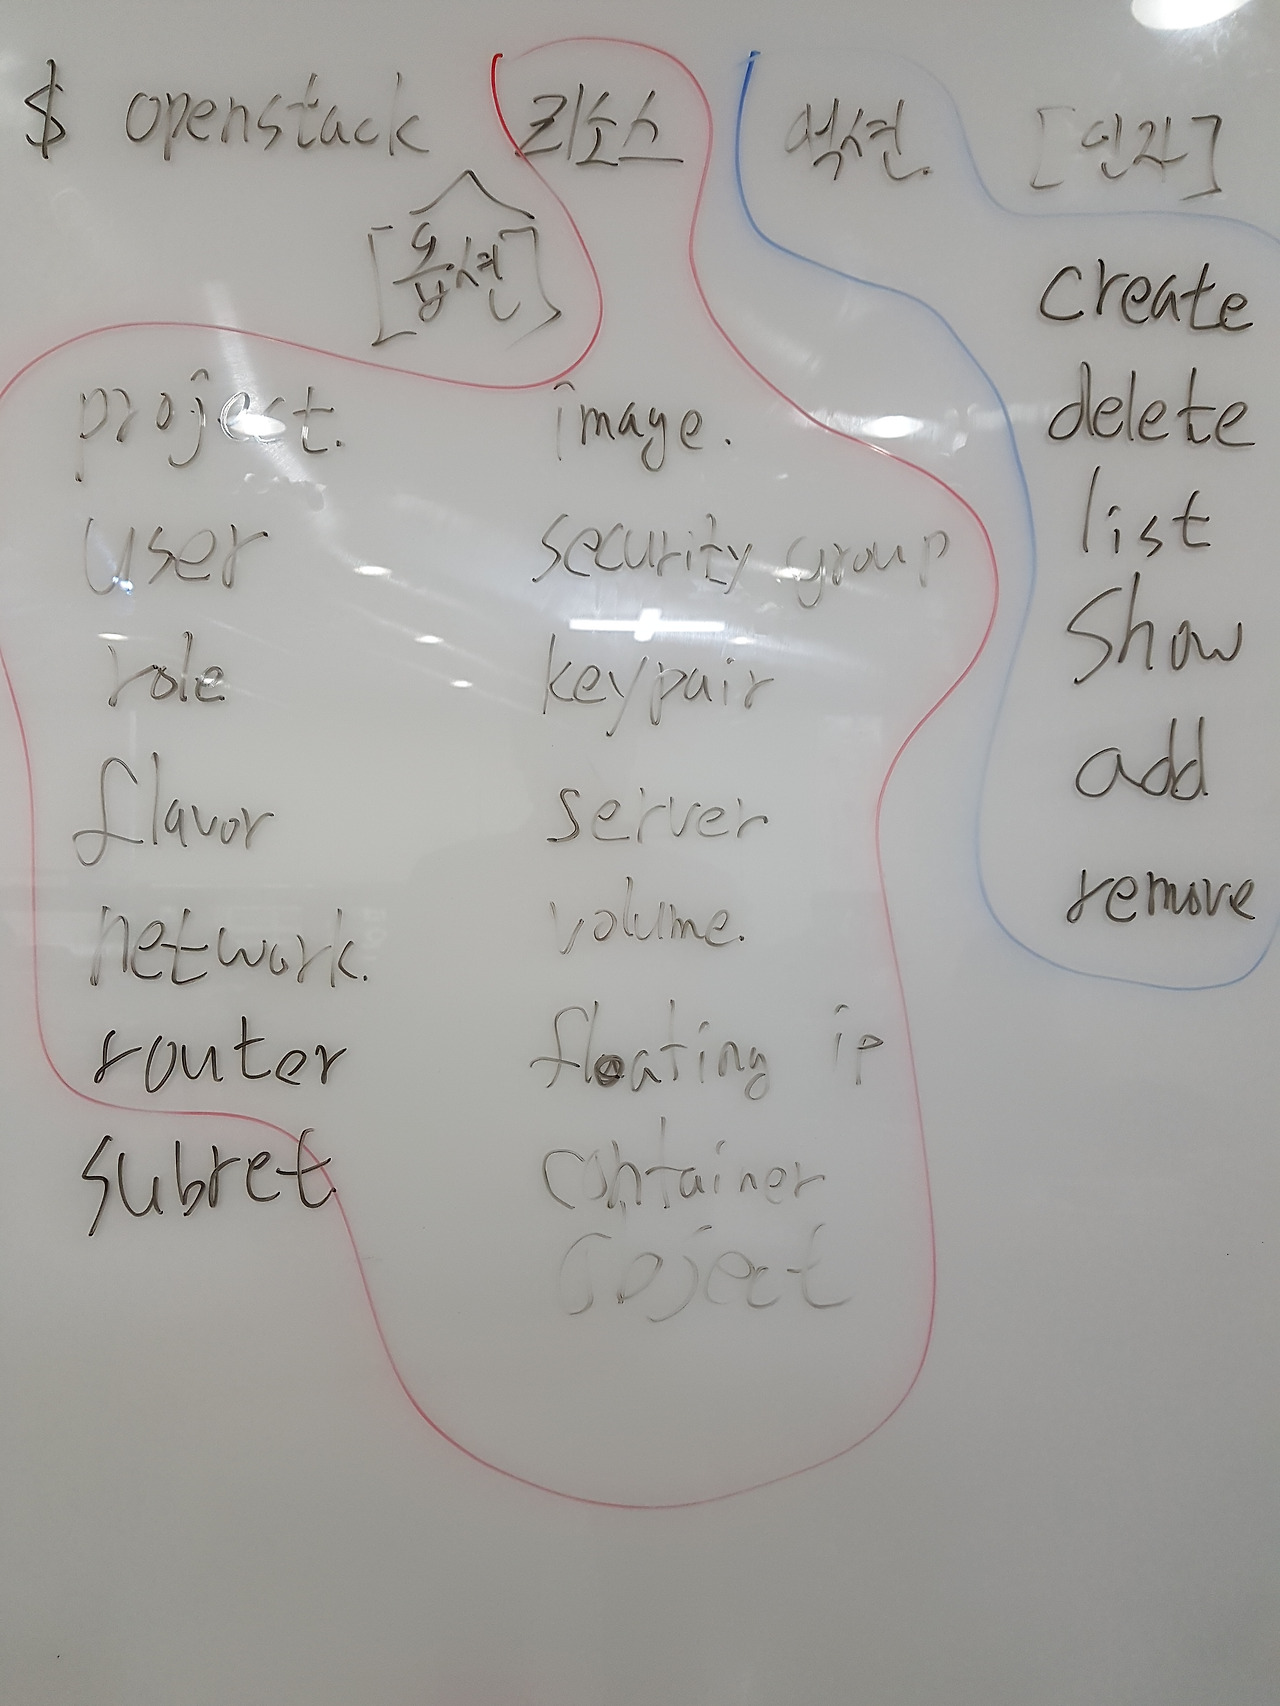 $ openstack 리소스 액션. [인자]
[옵션]
project.
user
role
flavor
network.
router
subnet
image.
security group
keypair
server
volume.
floating ip
container
object
create
delete
list
show
add
remove